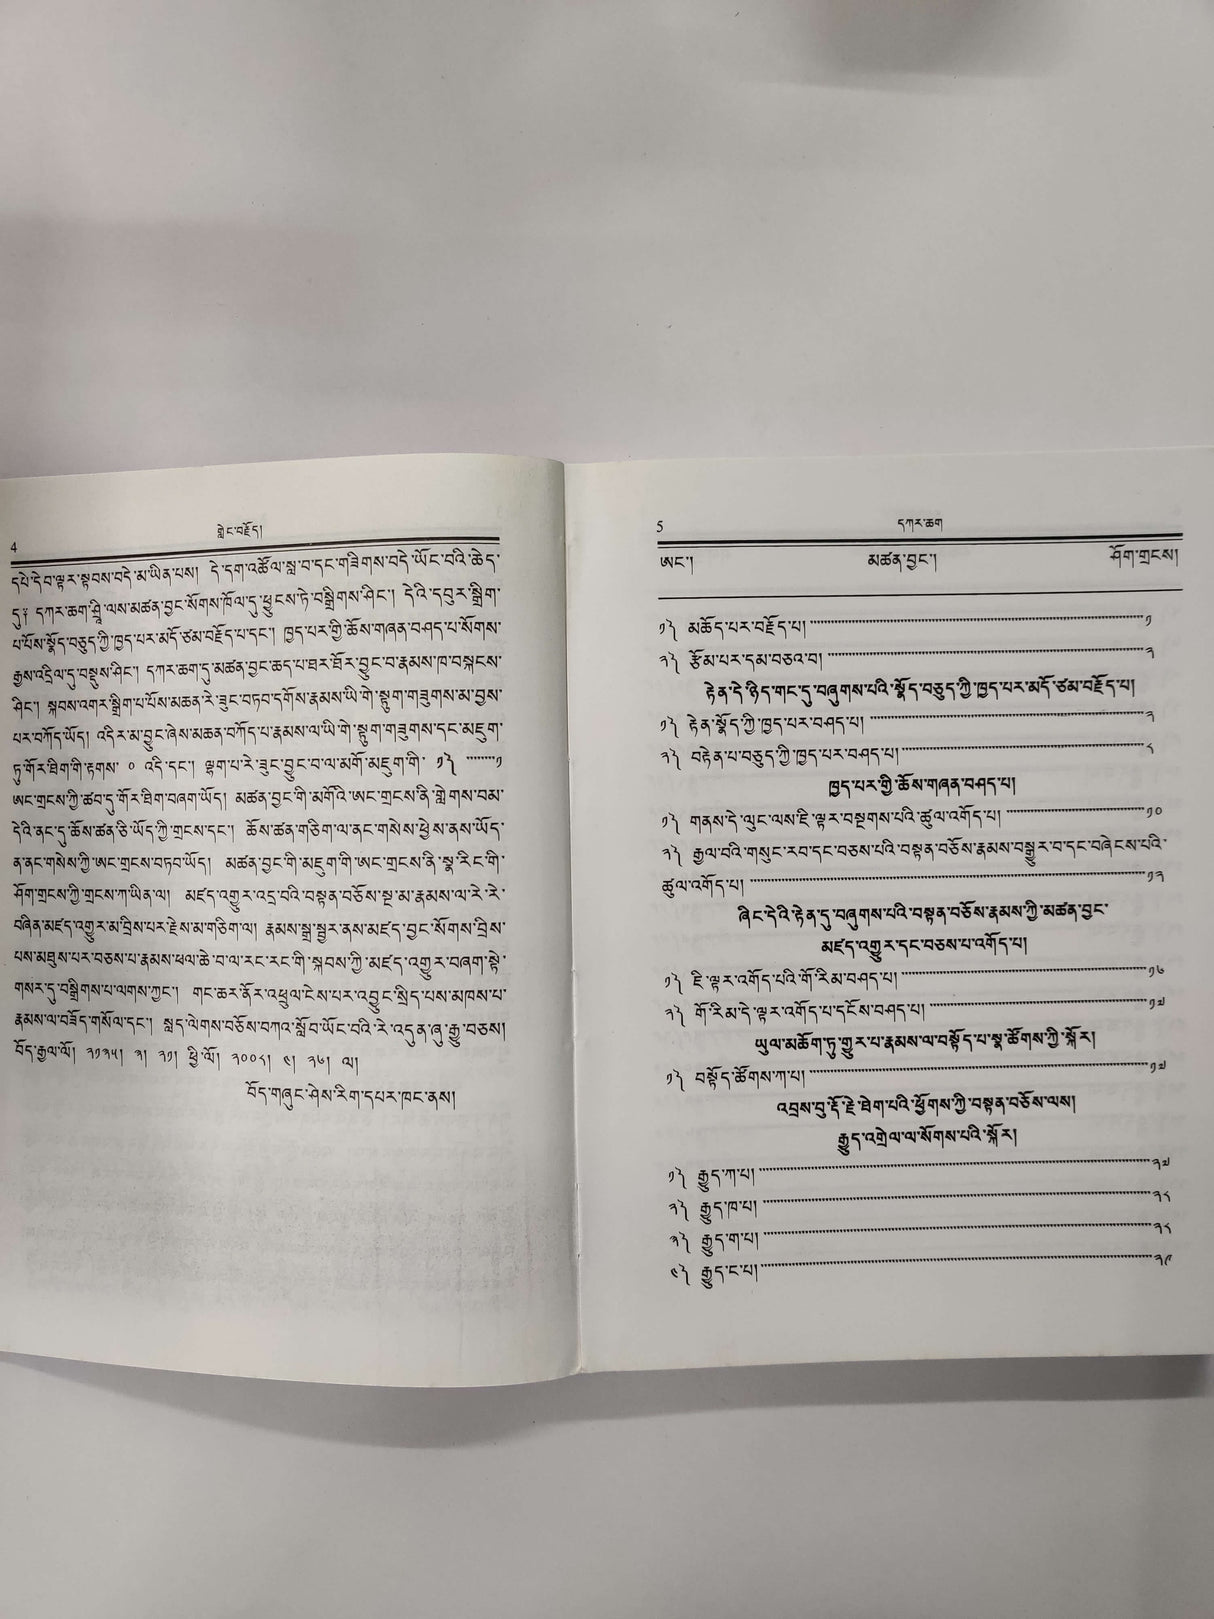 4
གླེང་བརྗོད།
དཔེ་དེབ་ལྟར་སྟབས་བདེ་མ་ཡིན་པས། དེ་དག་འཚོལ་སླ་བ་དང་གཟིགས་བདེ་ཡོང་བའི་ཆེད་
དུ༑ དཀར་ཆག་ཤྲཱི་ལས་མཚན་བྱང་སོགས་ཁོལ་དུ་ཕྱུངས་ཏེ་བསྒྲིགས་ཤིང་། དེའི་དབུར་སྒྲིག་
པ་པོས་སྣོད་བཅུད་ཀྱི་ཁྱད་པར་མདོ་ཙམ་བརྗོད་པ་དང་། ཁྱད་པར་གྱི་ཆོས་གཞན་བཤད་པ་སོགས་
རྒྱས་འདྲིལ་དུ་བསྡུས་ཤིང་། དཀར་ཆག་ཏུ་མཚན་བྱང་ཆད་པ་ཐར་ཐོར་བྱུང་བ་རྣམས་ཁ་བསྐངས་
ཤིང་། སྐབས་འགར་སྒྲིག་པ་པོས་མཆན་རེ་ཟུང་བཏབ་དགོས་རྣམས་ཡི་གེ་སྟུག་གཟུགས་མ་བྱས་
པར་བཀོད་ཡོད། འདིར་མ་བྱུང་ཞེས་མཆན་བཀོད་པ་རྣམས་ལ་ཡི་གེ་སྟུག་གཟུགས་དང་མཇུག་
ཏུ་གོར་ཐིག་གི་རྟགས་ ༠ འདི་དང་། ལྷག་པ་རེ་ཟུང་བྱུང་བ་ལ་མགོ་མཇུག་གི་ ༡༽ ········༡
ཨང་གྲངས་ཀྱི་ཚབ་ཏུ་གོར་ཐིག་བཞག་ཡོད། མཚན་བྱང་གི་མགོའི་ཨང་གྲངས་ནི་གླེགས་བམ་
དེའི་ནང་དུ་ཆོས་ཚན་ཅི་ཡོད་ཀྱི་གྲངས་དང་། ཆོས་ཚན་གཅིག་ལ་ནང་གསེས་ཕྱེས་ནས་ཡོད་
ན་ནང་གསེས་ཀྱི་ཨང་གྲངས་བཏབ་ཡོད། མཚན་བྱང་གི་མཇུག་གི་ཨང་གྲངས་ནི་སྣ་རིང་གི་
ཤོག་གྲངས་ཀྱི་གྲངས་ཀ་ཡིན་ལ། མཛད་འགྱུར་འདྲ་བའི་བསྟན་བཅོས་སྔ་མ་རྣམས་ལ་རེ་རེ་
བཞིན་མཛད་འགྱུར་མ་བྲིས་པར་རྗེས་མ་གཅིག་ལ། རྣམས་སྒྲ་སྦྱར་ནས་མཛད་བྱང་སོགས་བྲིས་
པས་མཐུས་པར་བཅས་པ་རྣམས་ཕལ་ཆེ་བ་ལ་རང་རང་གི་སྐབས་ཀྱི་མཛད་འགྱུར་བཞག་སྟེ་
གསར་དུ་བསྒྲིགས་པ་ལགས་ཀྱང་། གང་ཆར་ནོར་འཕྲུལ་ངེས་པར་འབྱུང་སྲིད་པས་མཁས་པ་
རྣམས་ལ་བཟོད་གསོལ་དང་། སླད་ལེགས་བཅོས་བཀའ་སློབ་ཡོང་བའི་རེ་འདུན་ཞུ་རྒྱུ་བཅས།
བོད་རྒྱལ་ལོ། ༢༡༢༥། ༢། ༢༡། ཕྱི་ལོ། ༢༠༠༨། ༤། ༢༦། ལ།
བོད་གཞུང་ཤེས་རིག་དཔར་ཁང་ནས།
5
དཀར་ཆག
ཨང་། མཚན་བྱང་། ཤོག་གྲངས།
༡༽ མཆོད་པར་བརྗོད་པ། ········ ༡
༢༽ རྩོམ་པར་དམ་བཅའ་བ། ········ ༢
རྟེན་དེ་ཉིད་གང་དུ་བཞུགས་པའི་སྣོད་བཅུད་ཀྱི་ཁྱད་པར་མདོ་ཙམ་བརྗོད་པ།
༡༽ རྟེན་སྣོད་ཀྱི་ཁྱད་པར་བཤད་པ། ········ ༢
༢༽ བརྟེན་པ་བཅུད་ཀྱི་ཁྱད་པར་བཤད་པ། ········ ༨
ཁྱད་པར་གྱི་ཆོས་གཞན་བཤད་པ།
༡༽ གནས་དེ་ལུང་ལས་ཇི་ལྟར་བསྔགས་པའི་ཚུལ་འགོད་པ། ········ ༡༠
༢༽ རྒྱལ་བའི་གསུང་རབ་དང་བཅས་པའི་བསྟན་བཅོས་རྣམས་བསྒྱུར་བ་དང་བཞེངས་པའི་
ཚུལ་འགོད་པ། ········ ༡༢
ཞིང་དེའི་རྟེན་དུ་བཞུགས་པའི་བསྟན་བཅོས་རྣམས་ཀྱི་མཚན་བྱང་
མཛད་འགྱུར་དང་བཅས་པ་འགོད་པ།
༡༽ ཇི་ལྟར་འགོད་པའི་གོ་རིམ་བཤད་པ། ········ ༡༦
༢༽ གོ་རིམ་དེ་ལྟར་འགོད་པ་དངོས་བཤད་པ། ········ ༡༧
ཡུལ་མཆོག་ཏུ་གྱུར་པ་རྣམས་ལ་བསྟོད་པ་སྣ་ཚོགས་ཀྱི་སྐོར།
༡༽ བསྟོད་ཚོགས་ཀ་པ། ········ ༡༧
འབྲས་བུ་རྡོ་རྗེ་ཐེག་པའི་ཕྱོགས་ཀྱི་བསྟན་བཅོས་ལས།
རྒྱུད་འགྲེལ་ལ་སོགས་པའི་སྐོར།
༡༽ རྒྱུད་ཀ་པ། ········ ༢༧
༢༽ རྒྱུད་ཁ་པ། ········ ༢༨
༣༽ རྒྱུད་ག་པ། ········ ༢༨
༤༽ རྒྱུད་ང་པ། ········ ༢༩